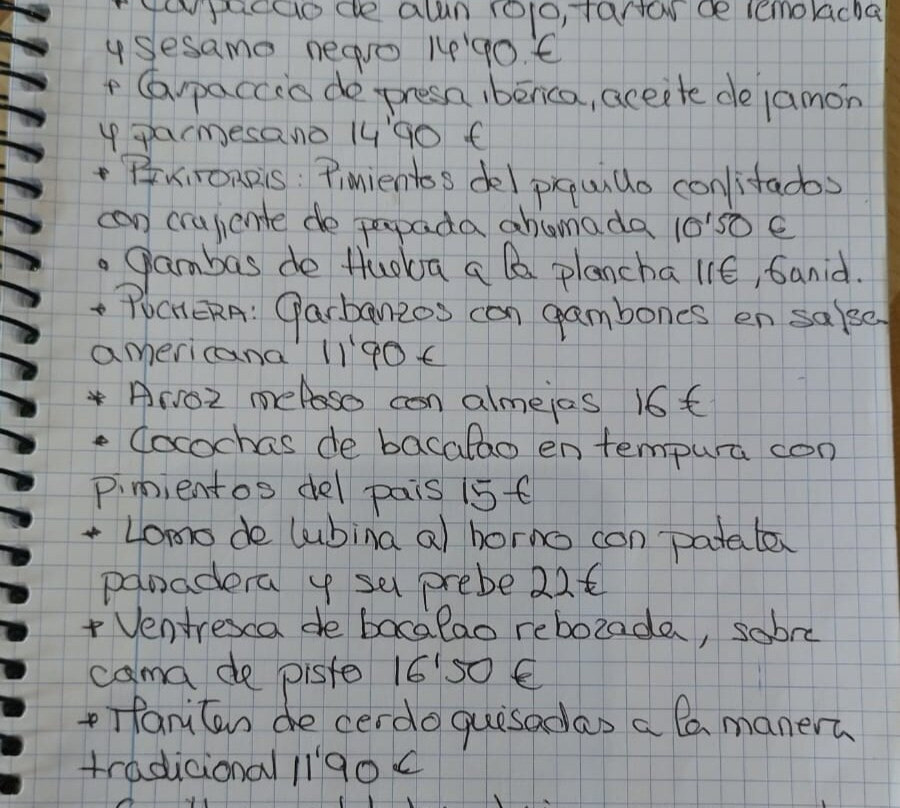 Carpaccio de atún rojo, tartar de remolacha
y sesamo negro 14'90 €
+ Carpaccio de presa ibérica, aceite de jamón
y parmesano 14'90 €
* PIKITORRIS: Pimientos del piquillo confitados
con crujiente de papada ahumada 10'50 €
• Gambas de Huelva a la plancha 11€, 6 unid.
* PUCHERA: Garbanzos con gambones en salsa
americana 11'90 €
* Arroz meloso con almejas 16 €
• Cocochas de bacalao en tempura con
pimientos del país 15 €
* Lomo de lubina al horno con patata
panadera y su prebe 22€
+ Ventresca de bacalao rebozada, sobre
cama de pisto 16'50 €
* Manitas de cerdo guisadas a la manera
tradicional 11'90 €